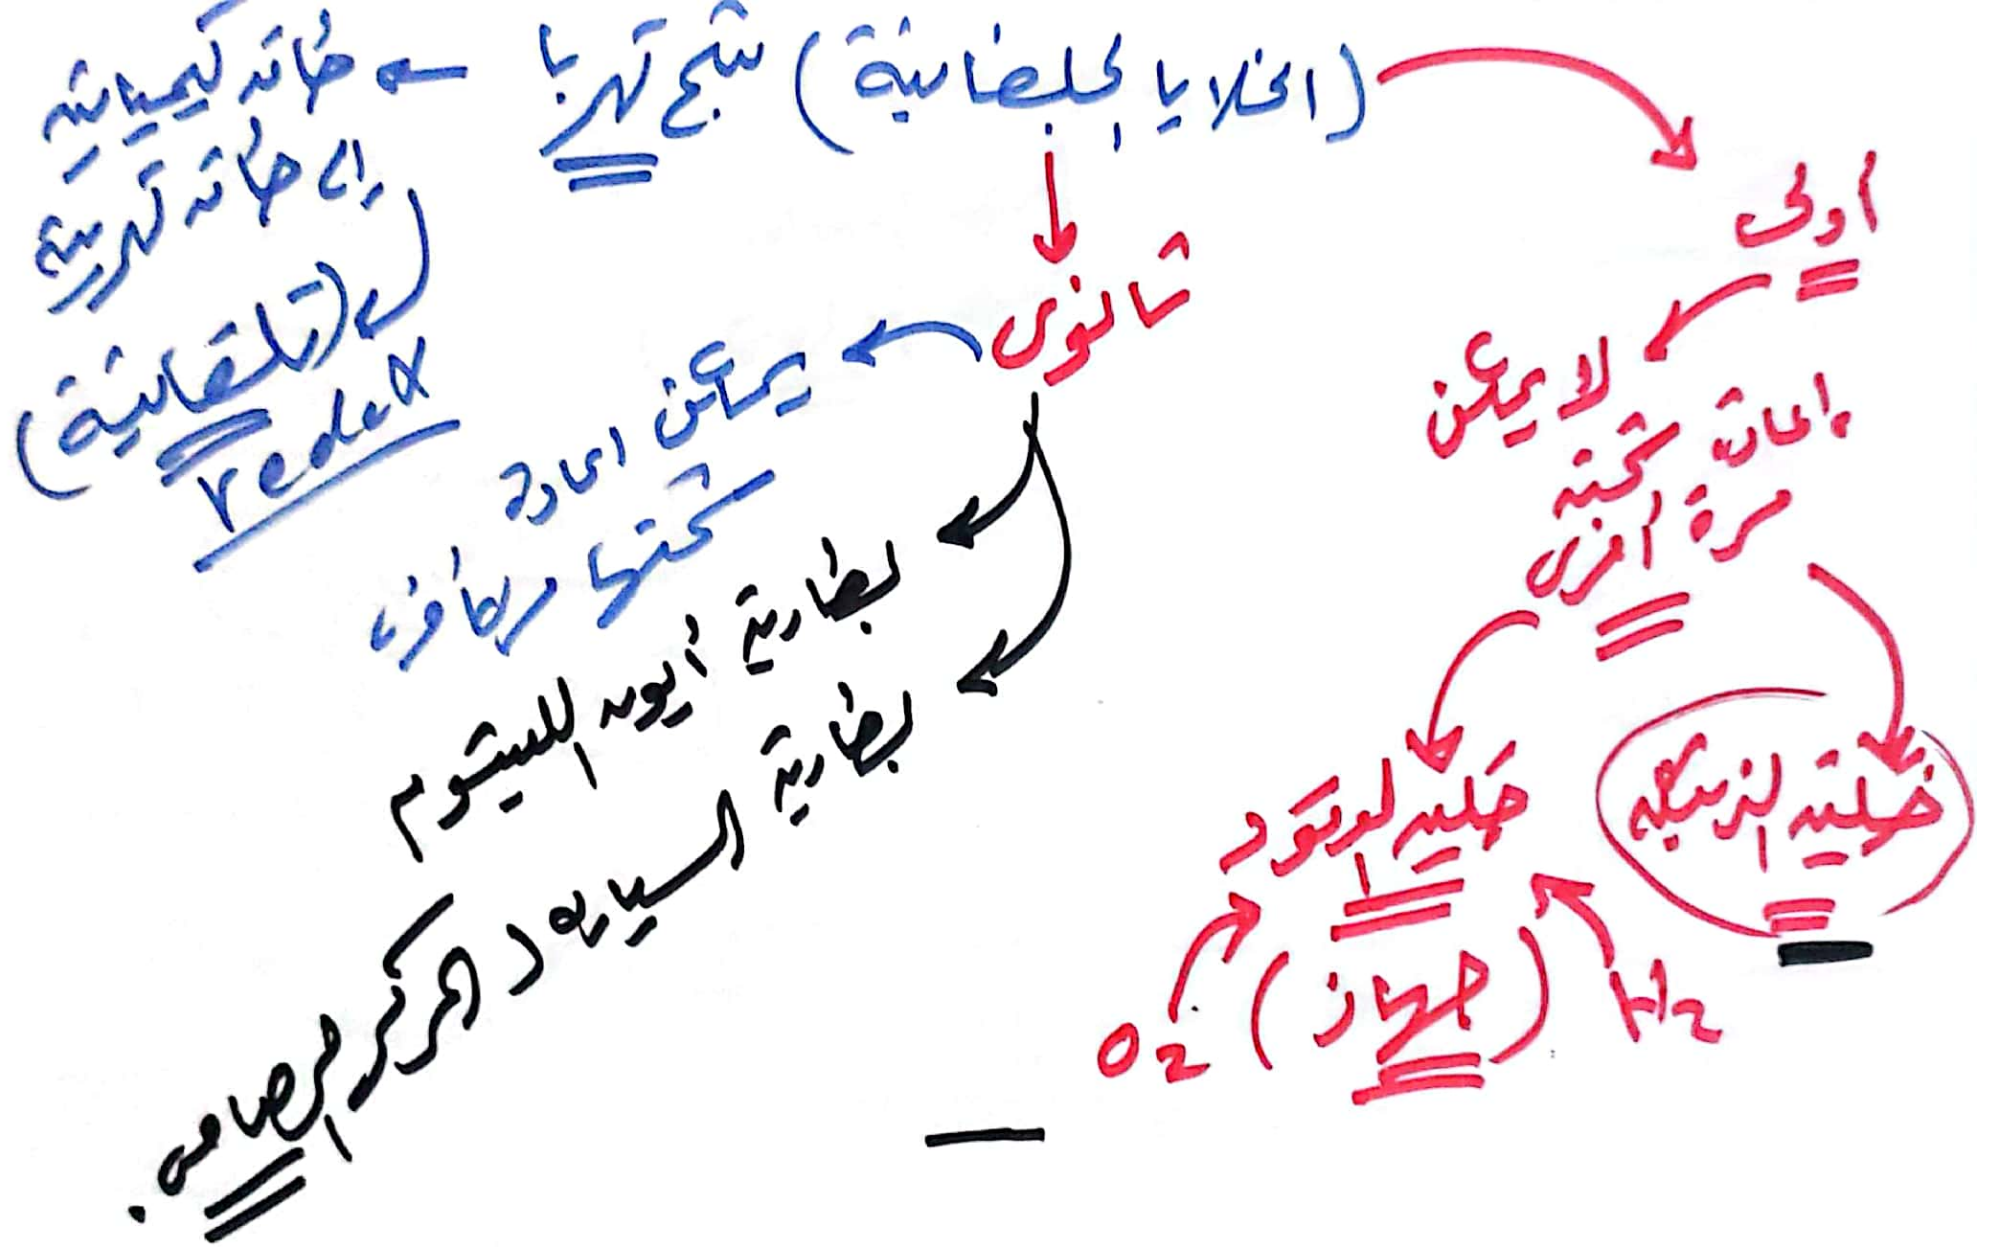 (الخلايا الجلفانية) تنتج كهربا ← طاقة كيميائية
إلى طاقة كهربية
(تلقائية)
redox
أولى
لا يمكن
إعادة شحنه
مرة أخرى
خلية الزئبق
خلية الوقود
(جهاز)
H2
O2
ثانوى
يمكن اعادة
شحنها مرة أخرى
بطارية أيون الليثيوم
بطارية السيارة (المركم الرصاصى.